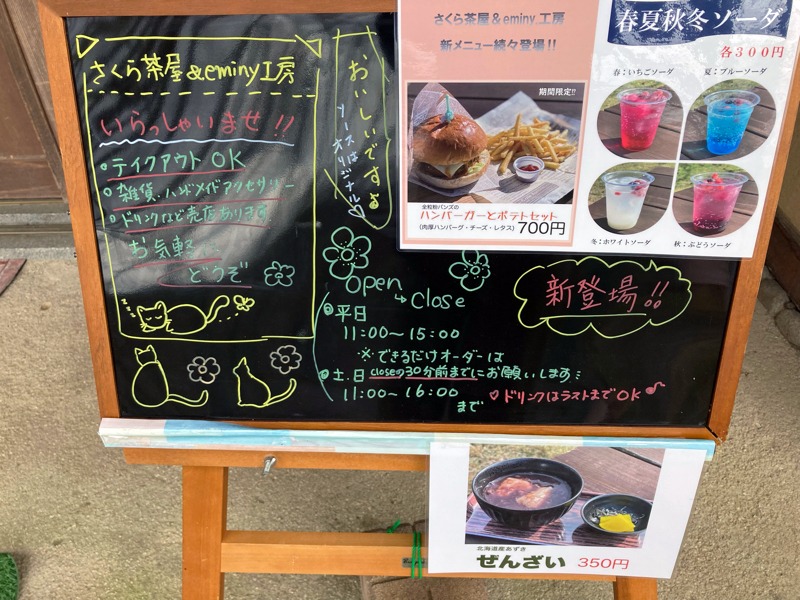 さくら茶屋&eminy工房
いらっしゃいませ!!
・テイクアウトOK
・雑貨、ハンドメイドアクセサリー
・ドリンクなど売店あります
お気軽に
どうぞ
zzz
おいしいですよ
ソースはオリジナル♡
open
↳close
平日
11:00〜15:00
※できるだけオーダーは
closeの30分前までにお願いします
土、日
11:00〜16:00
まで
♡ドリンクはラストまでOK♪
新登場!!
さくら茶屋&eminy.工房
新メニュー続々登場!!
期間限定!!
全粒粉バンズの
ハンバーガーとポテトセット
(肉厚ハンバーグ・チーズ・レタス) 700円
春夏秋冬ソーダ
各300円
春:いちごソーダ
夏:ブルーソーダ
冬:ホワイトソーダ
秋:ぶどうソーダ
北海道産あずき
ぜんざい 350円